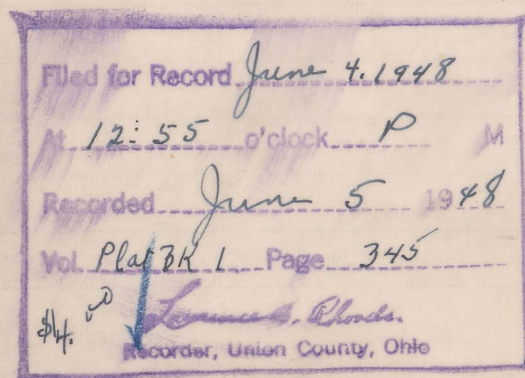 Filed for Record June 4. 1948
At 12:55 o'clock P M
Recorded June 5 1948
Vol. Plat BK 1 Page 345
$4.00 Rhoads.
Recorder, Union County, Ohio